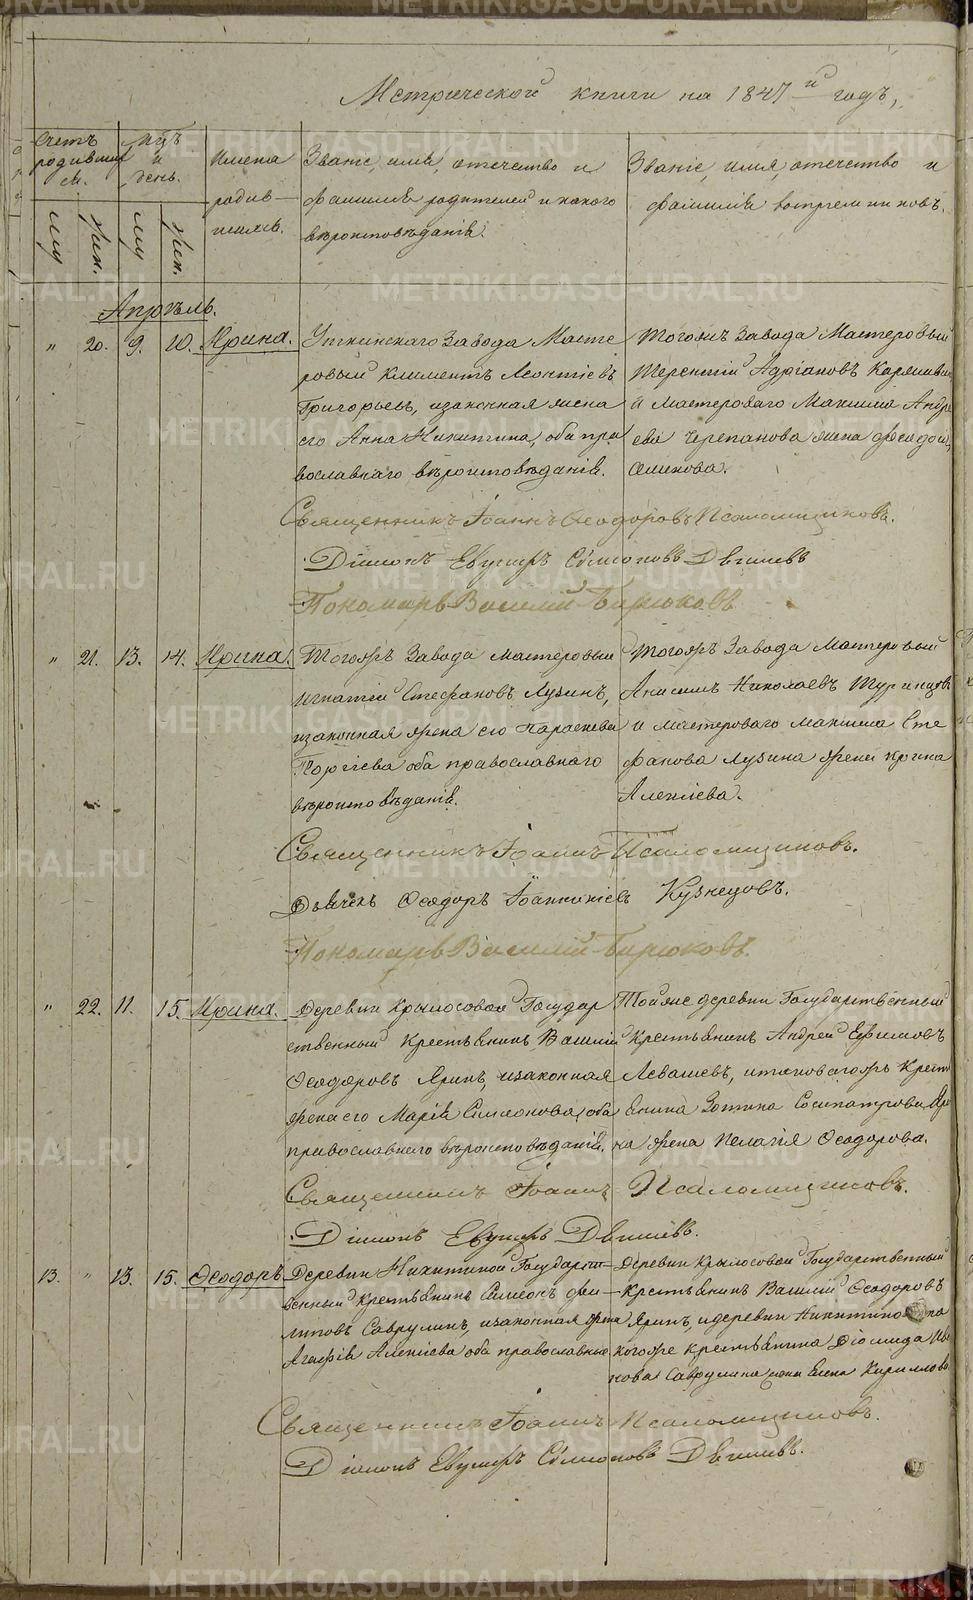 Метрической книги на 1847й годъ,
Счетъ родившихся.
Мцъ и день.
Имена родившихся.
Званіе, имя, отечество и фамилія родителей и какого вѣроисповѣданія.
Званіе, имя, отечество и фамилія воспріемниковъ.
муж. жен. жен.
Апрѣль.
" 20. 9. 10. Ирина.
Уткинскаго Завода Масте
ровый Климентъ Леонтіевъ
Григорьевъ, изаконная жена
его Анна Никитина, оба пра
вославнаго вѣроисповѣданія.
Тогожъ Завода Мастеровый
Терентій Адріановъ
и мастероваго Максима Андре
ева Черепанова жена Феодосія
Семенова.
Священникъ Іоаннъ Ѳеодоровъ Псаломщиковъ.
Діаконъ Евѳимъ Сѵмеоновъ Двинѣвъ
Пономарь Василій Бирюковъ
" 21. 13. 14. Ирина.
Тогожъ Завода мастеровый
Игнатій Стефановъ Лузинъ,
изаконная жена его Параскева
Георгіева оба православнаго
вѣроисповѣданія.
Тогожъ Завода Мастеровый
Анисимъ Николаевъ
и мастероваго Максима Сте
фанова Лузина жена Ирина
Алексіева.
Священникъ Іоаннъ Псаломщиковъ.
Дьячекъ Ѳеодоръ Іоанникіевъ Кузнецовъ.
Пономарь Василій Бирюковъ.
" 22. 11. 15. Ирина.
Деревни Крылосовой Государ
ственный Крестьянинъ Василій
Ѳеодоровъ Яринъ, изаконная
жена его Марія Симеонова, оба
православнаго вѣроисповѣданія.
Тойже деревни Государственный
Крестьянинъ Андрей Ефимовъ
Левашевъ, итаковагожъ Крест
янина Зотика Сосипатрова Яри
на жена Пелагія Ѳеодорова.
Священникъ Іоаннъ Псаломщиковъ.
Діаконъ Евѳимъ Двинѣвъ.
13. " 13. 15. Ѳеодоръ
Деревни Никитиной Государст
венный Крестьянинъ Симеонъ Фи
липовъ Саврулинъ, изаконная жена
Агафія Алексіева оба православные
Деревни Крылосовой Государственный
Крестьянинъ Василій Ѳеодоровъ
Яринъ, идеревни Никитиной та
когоже крестьянина Діомида Ива
нова Саврулина жена Елена Кириллова
Священникъ Іоаннъ Псаломщиковъ.
Діаконъ Евѳимъ Сѵмеоновъ Двинѣвъ.
METRIKI.GASO-URAL.RU